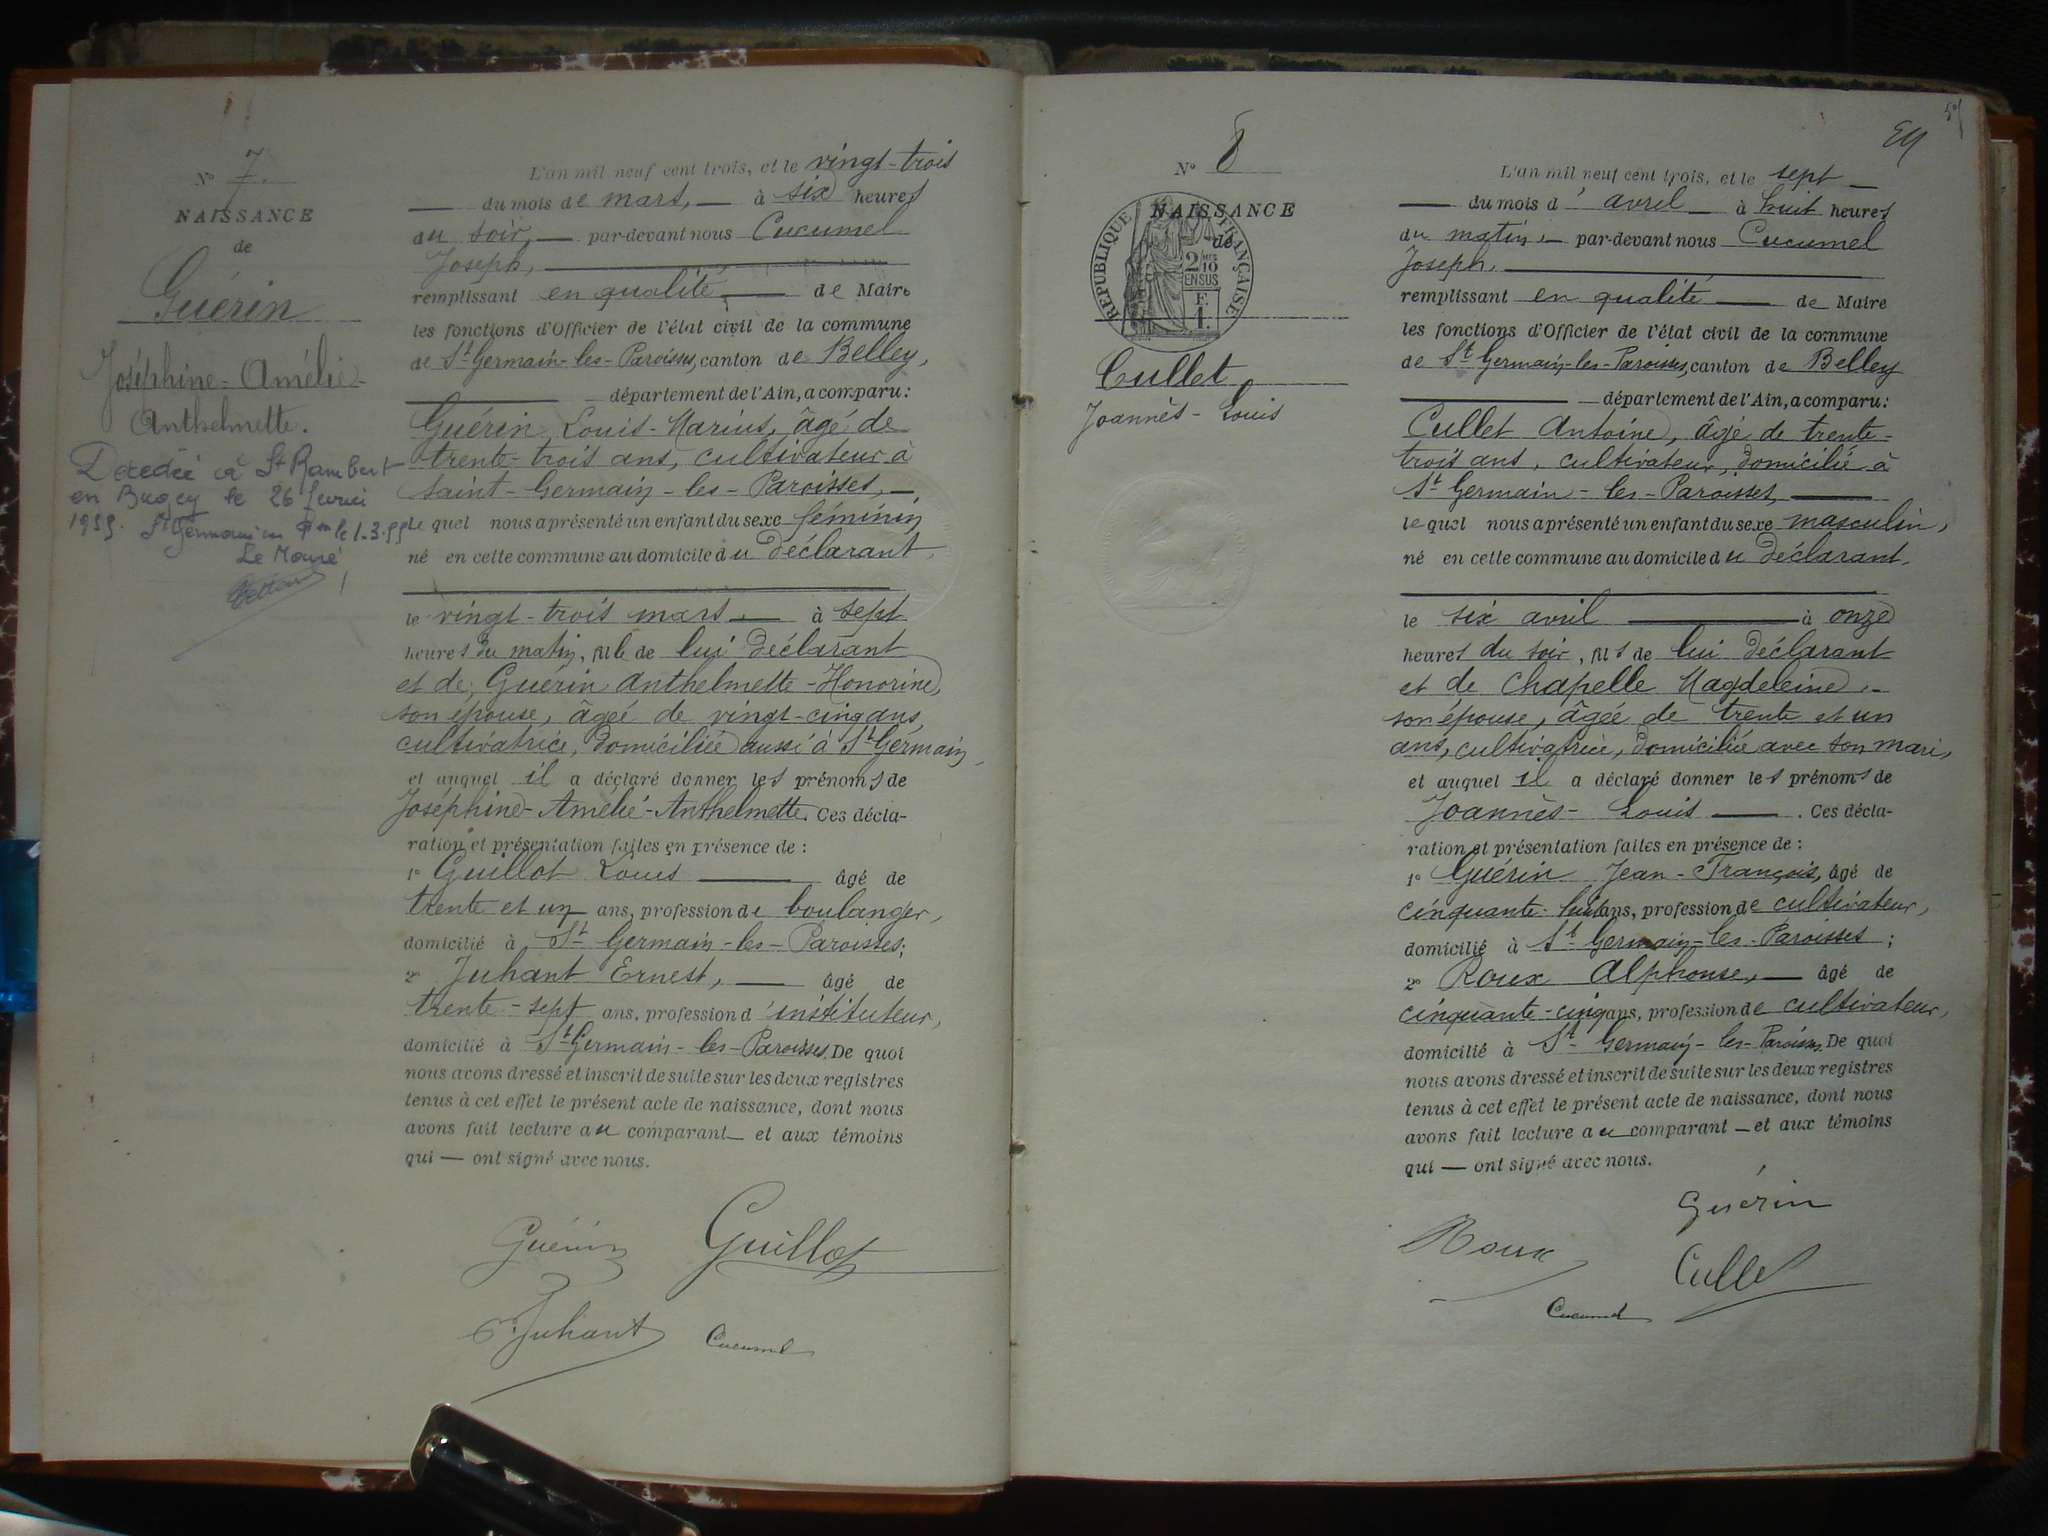 N° 7.
NAISSANCE
de
Guérin
Joséphine-Amélie-
Anthelmette.
Décédée à St Rambert
en Bugey le 26 février
1955. St Germain les Pses le 1-3-55
Le Maire
L'an mil neuf cent trois, et le vingt-trois
du mois de mars, à six heures
du soir, par-devant nous Cucumel
Joseph,
remplissant en qualité de Maire
les fonctions d'Officier de l'état civil de la commune
de St Germain-les-Paroisses, canton de Belley,
département de l'Ain, a comparu:
Guérin Louis-Marius, âgé de
trente-trois ans, cultivateur à
Saint-Germain-les-Paroisses,
le quel nous a présenté un enfant du sexe féminin
né en cette commune au domicile du déclarant,
le vingt-trois mars à sept
heures du matin, fille de lui déclarant
et de Guérin Anthelmette-Honorine,
son épouse, âgée de vingt-cinq ans,
cultivatrice, domiciliée aussi à St Germain,
et auquel il a déclaré donner les prénoms de
Joséphine-Amélie-Anthelmette. Ces décla-
ration et présentation faites en présence de :
1° Guillot Louis âgé de
trente et un ans, profession de boulanger,
domicilié à St Germain-les-Paroisses;
2° Juhant Ernest, âgé de
trente-sept ans, profession d'instituteur,
domicilié à St Germain-les-Paroisses. De quoi
nous avons dressé et inscrit de suite sur les deux registres
tenus à cet effet le présent acte de naissance, dont nous
avons fait lecture au comparant et aux témoins
qui — ont signé avec nous.
Guérin Guillot
E. Juhant Cucumel
N° 8
NAISSANCE
de
REPUBLIQUE FRANÇAISE
2/10
EN SUS
F.
1.
Cullet
Joannès-Louis
L'an mil neuf cent trois, et le sept
du mois d'avril à huit heures
du matin, par-devant nous Cucumel
Joseph,
remplissant en qualité de Maire
les fonctions d'Officier de l'état civil de la commune
de St Germain-les-Paroisses, canton de Belley
département de l'Ain, a comparu:
Cullet Antoine, âgé de trente-
trois ans, cultivateur, domicilié à
St Germain-les-Paroisses,
le quel nous a présenté un enfant du sexe masculin,
né en cette commune au domicile du déclarant,
le six avril à onze
heures du soir, fils de lui déclarant
et de Chapelle Magdeleine,
son épouse, âgée de trente et un
ans, cultivatrice, domiciliée avec son mari,
et auquel il a déclaré donner les prénoms de
Joannès-Louis. Ces décla-
ration et présentation faites en présence de :
1° Guérin Jean-François, âgé de
cinquante-huit ans, profession de cultivateur,
domicilié à St Germain-les-Paroisses ;
2° Roux Alphonse, âgé de
cinquante-cinq ans, profession de cultivateur,
domicilié à St Germain-les-Paroisses. De quoi
nous avons dressé et inscrit de suite sur les deux registres
tenus à cet effet le présent acte de naissance, dont nous
avons fait lecture au comparant — et aux témoins
qui — ont signé avec nous.
Guérin
Roux Cullet
Cucumel